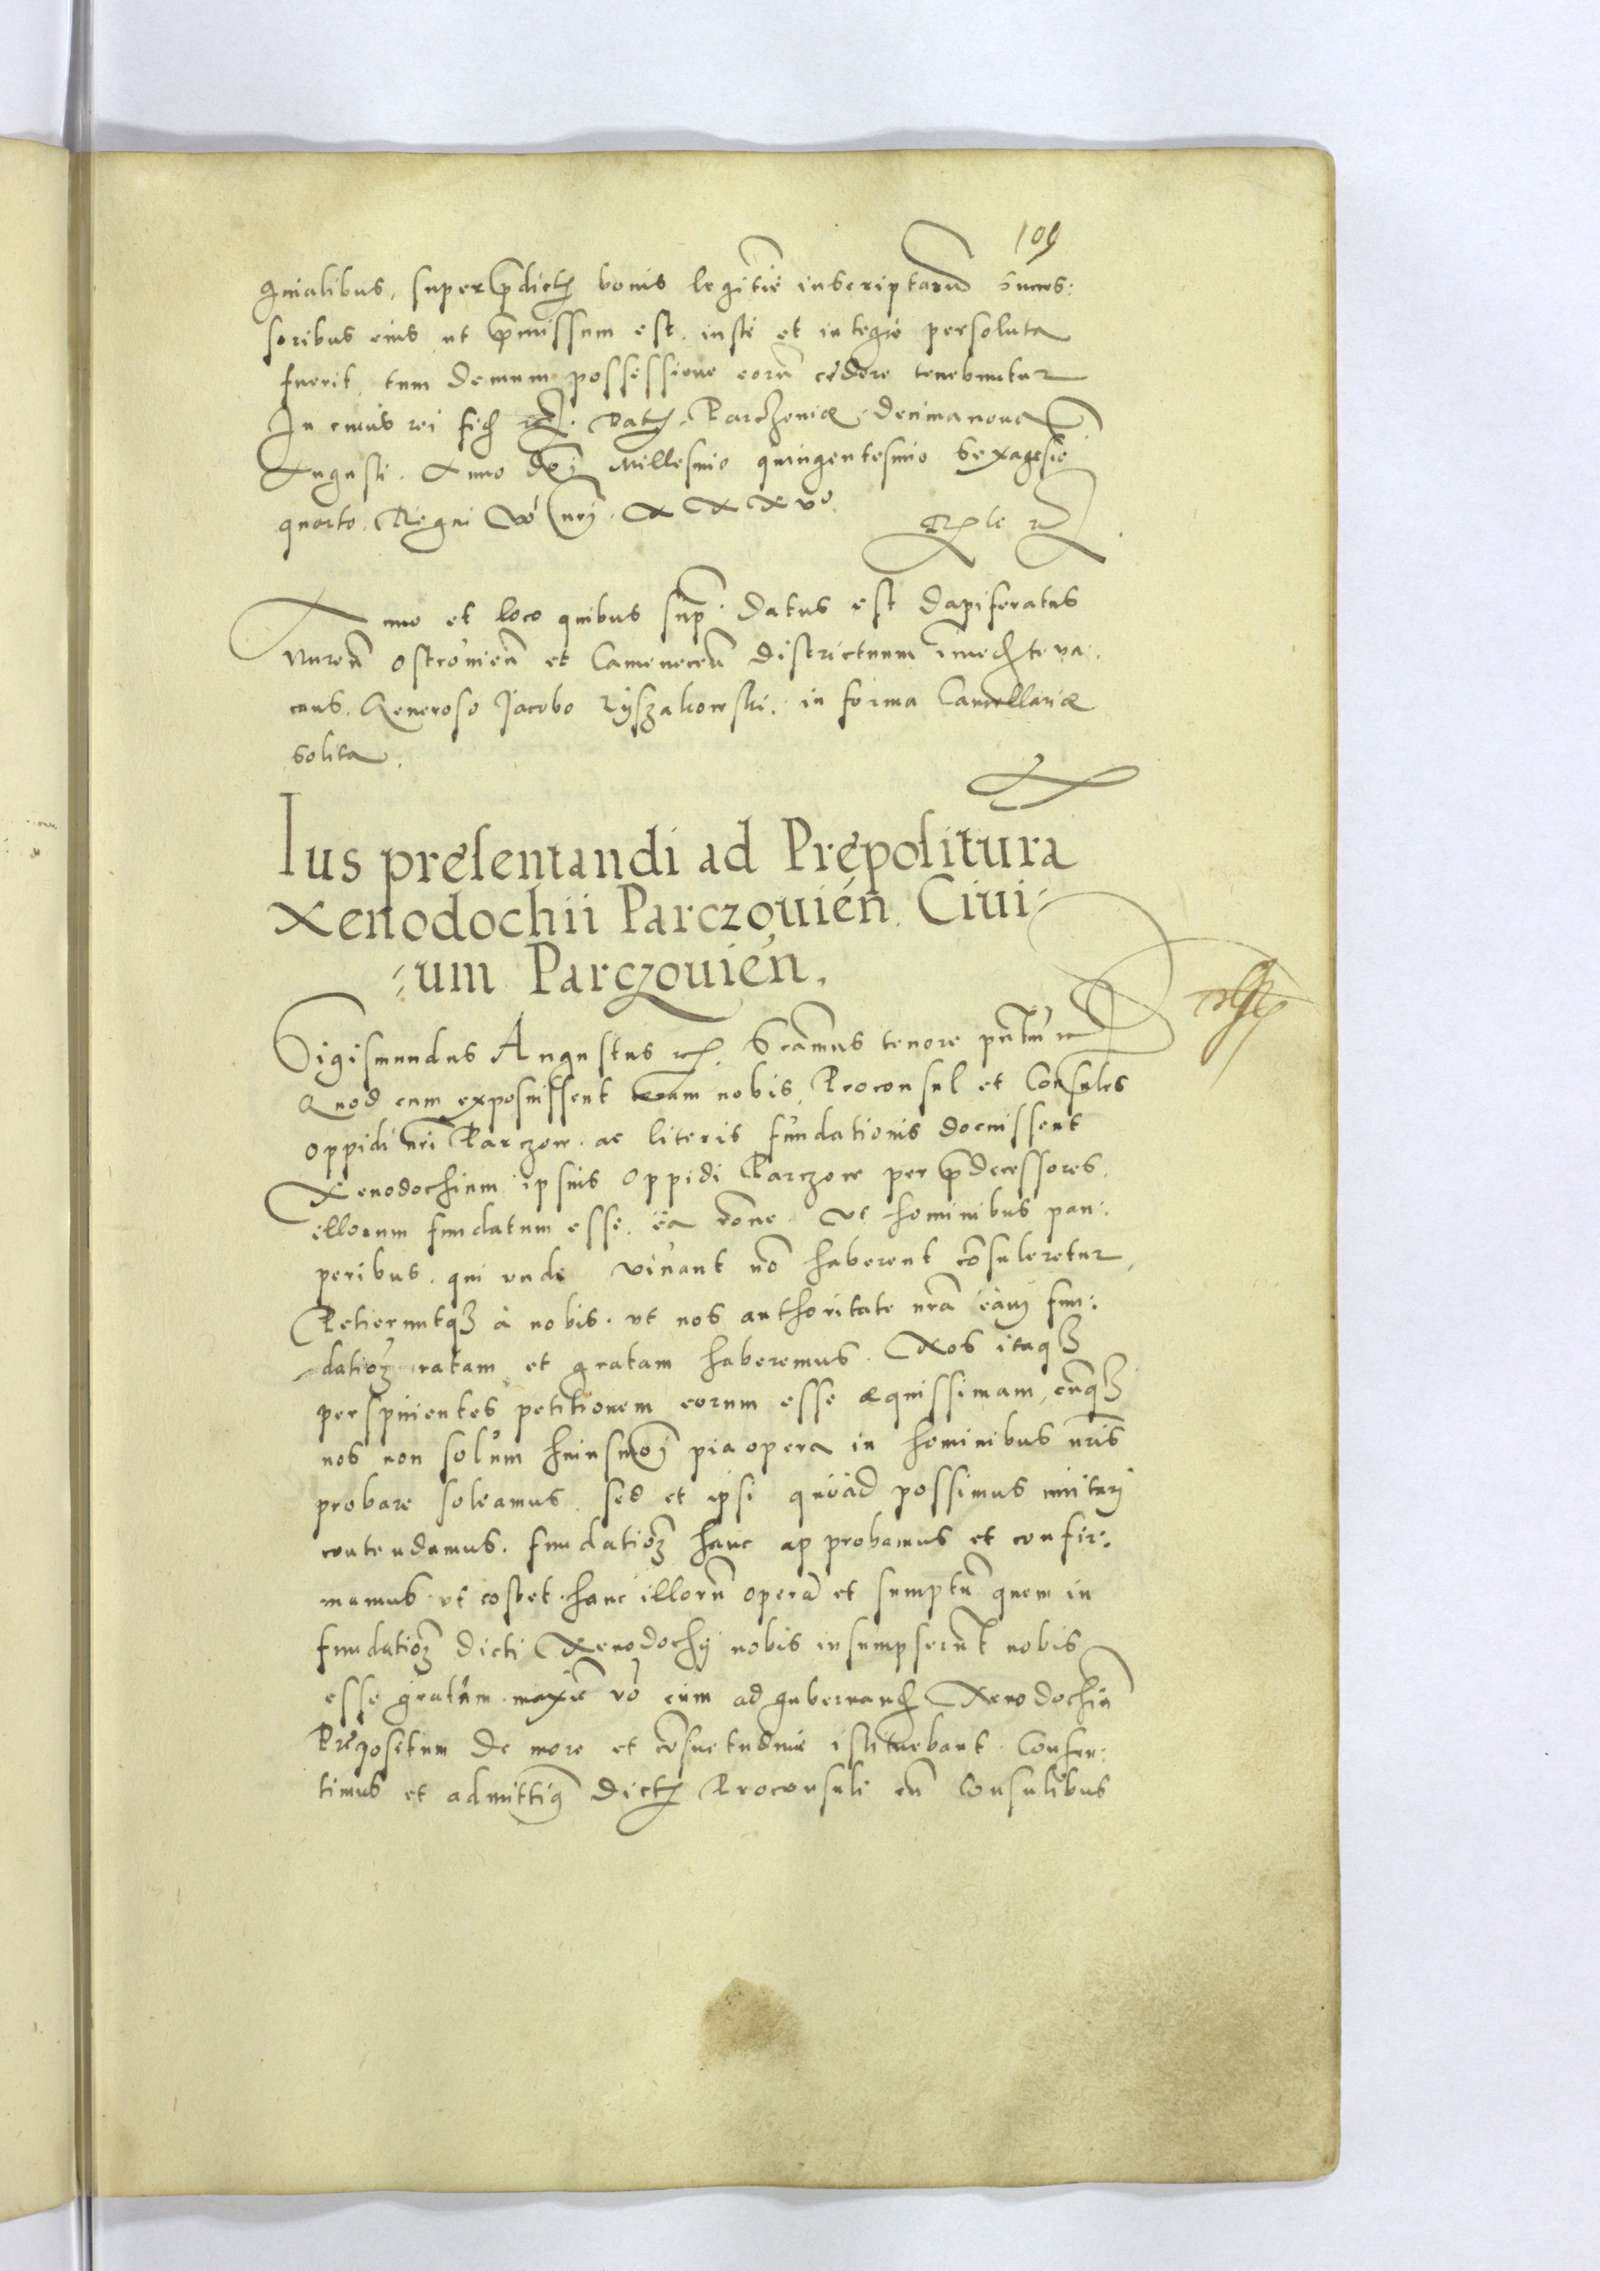 109
gnialibus, super p̄dictꝭ bonis legitīe inscriptarū succes:
soribus eius ut p̄missum est, iustè et integrè persoluta
fuerit, tum demum possessione eorū cedere tenebuntur
In cuius rei fidē etc. Datꝭ Parczouiæ decimanona
Augusti. Anno dn̄j Millesimo quingentesimo sexagesiō
quarto. Regni vo nrj. XXXVo.
Anno et loco quibus sup̄. datus est dapiferatus
Nuren̄ Ostrouien̄ et Camenecen̄ districtuum va:
cans. Generoso Jacobo Ryszakowski. in forma Cancellariæ
solita.
Ius presentandi ad Prepositura
Xenodochii Parczouień. Ciui:
:um Parczouień.
Sigismundus Augustus rex. S tenore
Quod cum exposuissent coram nobis, Proconsul et Consules
oppidi nrī Parczow. ac literis fundationis docuissent
Xenodochium ipsius oppidi Parczow per p̄decessores
illorum fundatum esse, ea rōne. ut hominibus pau:
peribus. qui unde viuant nō haberent cōsuleretur,
Petieruntqꝫ à nobis. ut nos authoritate nrā eam fun:
datioꝫ ratam et gratam haberemus. Nos itaqꝫ
perspicientes petitionem eorum esse æquissimam, cūqꝫ
nos non solum huiusmōj pia opera in hominibus nrīs
probare soleamus. sed et ipsi quoad possimus imitarj
contendamus. fundatioꝫ hanc approbamus et confir:
mamus. ut costet. hanc illorū operā et sumptū quem in
fundatioꝫ dicti Xenodochij nobis insumpserūt nobis
esse gratum. maxīe vō cum ad gubernandꝭ Xenodochiū
Prepositum de more et cōsuetudine istituebant. Consen:
timus et admittimꝰ dictꝭ Proconsuli cū Consulibus